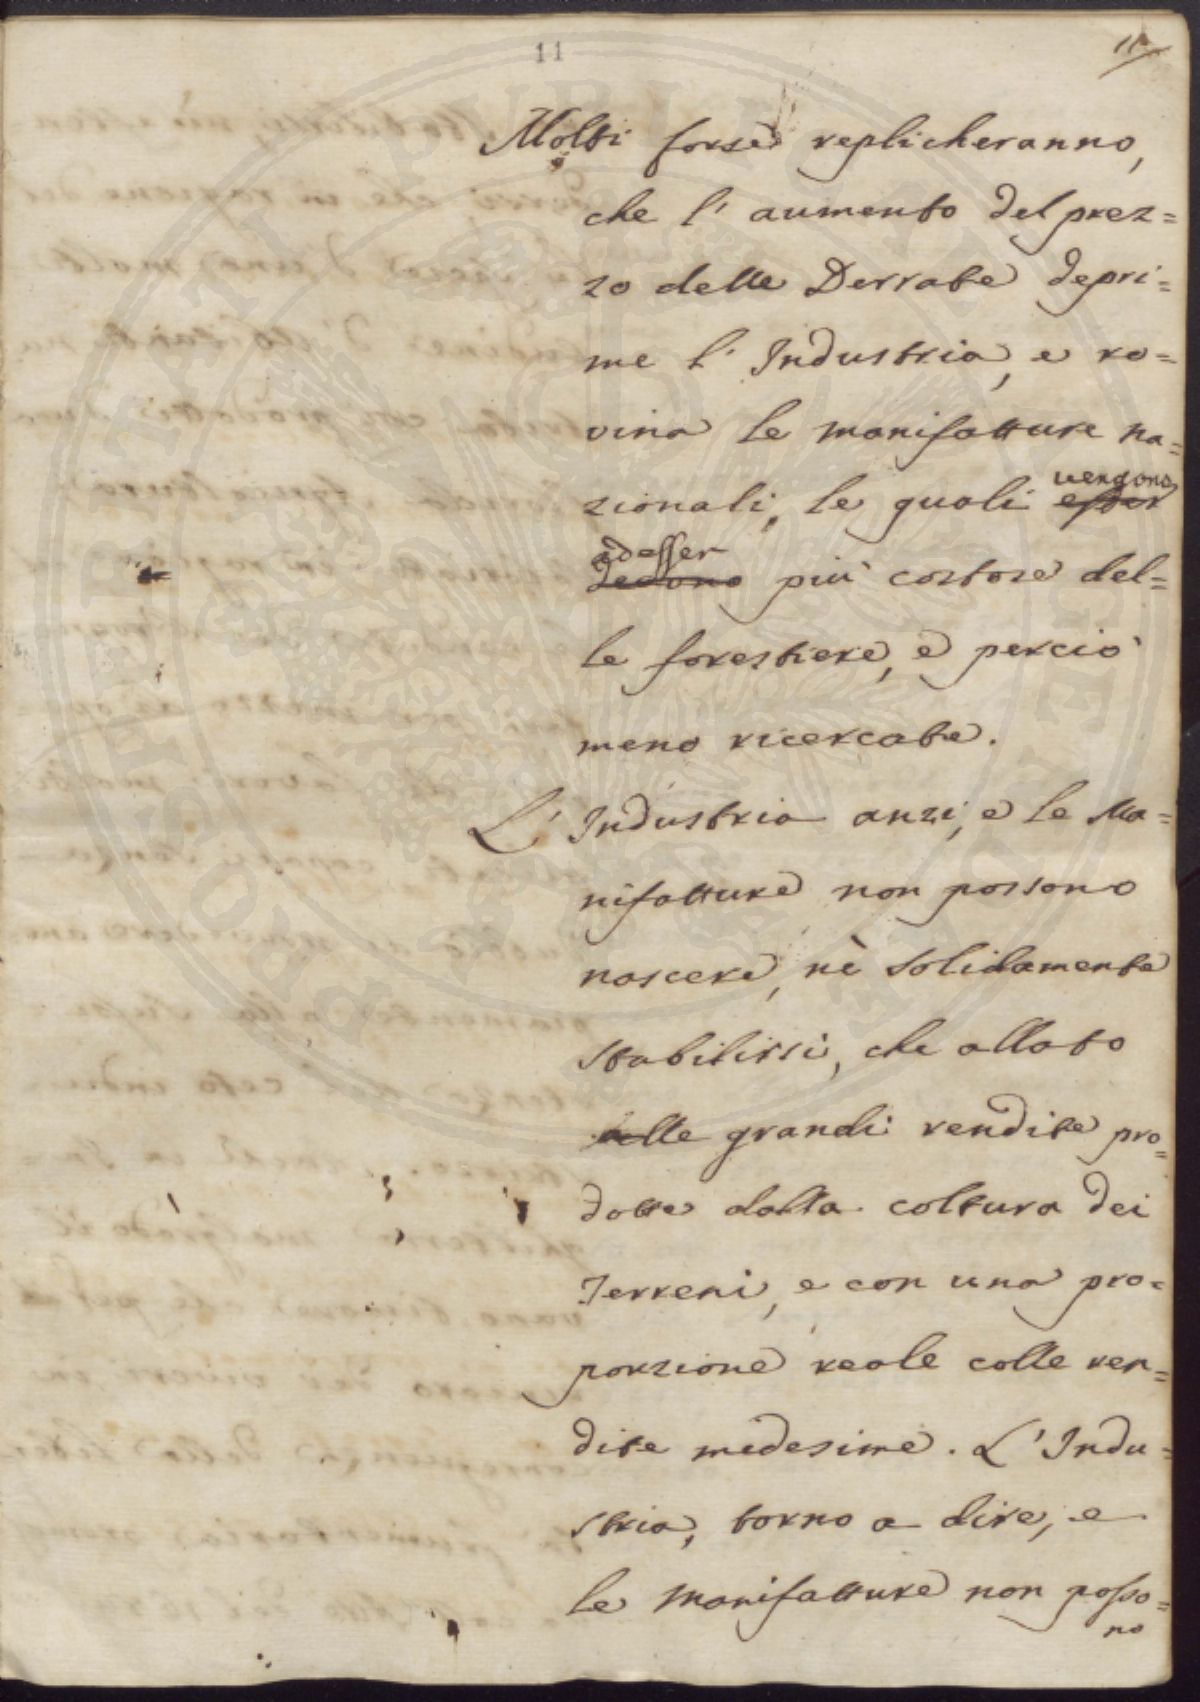 11
11
Molti forse replicheranno,
che l' aumento del prez=
zo delle Derrate depri=
me l' Industria, e ro=
vina le manifatture na=
zionali, le quali esser vengono
adesser devono più costose del=
le forestiere, e perciò
meno ricercate.
L' Industria anzi, e le Ma=
nifatture non possono
nascere, nè solidamente
stabilirsi, che allato
alle grandi rendite pro=
dotte dalla coltura dei
Terreni, e con una pro=
porzione reale colle ren=
dite medesime. L' Indu=
stria, torno a dire, e
le Manifatture non posso=
no
PROSPERITATI PUBLICAE AUGENDAE